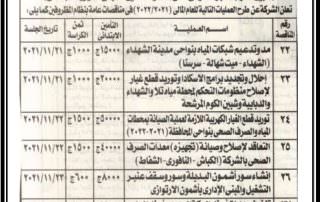 تعلن الشركة عن طرح العمليات التالية للعام المالى (٢٠٢٢/٢٠٢١) فى مناقصات عامة بنظام المظروفين كمايلى:
رقم المناقصة اسم العملية التأمين الابتدائى ثمن الكراسة تاريخ الجلسة
٢٢ مد وتدعيم شبكات المياه بنواحى مدينة الشهداء (الشهداء - ميت شهالة - سرسنا) ١٥٠٠٠ج ١٠٠٠ج ٢٠٢١/١١/٢١
٢٣ إحلال وتجديد برامج الاسكادا وتوريد قطع غيار لإصلاح منظومات التحكم لمحطة مياه تلا والشهداء والدبايبة وشبين الكوم المرشحة ٢٠٠٠٠ج ١٠٠٠ج ٢٠٢١/١١/٢١
٢٤ توريد قطع الغيار الكهربية اللازمة لعملية الصيانة بمحطات المياه والصرف الصحى بنواحى المحافظة (٢٠٢١-٢٠٢٢) ٥٠٠٠٠ج ١٠٠٠ج ٢٠٢١/١١/٢٢
٢٥ التعاقد لإصلاح وصيانة (تجهيزه) معدات الصرف الصحى بالشركة (الكباش - النافورى - الشفاط) ٤٠٠٠٠ج ١٠٠٠ج ٢٠٢١/١١/٢٢
٢٦ إنشاء سور أشمون البديلة وسور وسقف عنبر التشغيل والمبنى الإدارى بأشمون الارتوازى ٨٠٠٠ج ٦٠٠ج ٢٠٢١/١١/٢٣